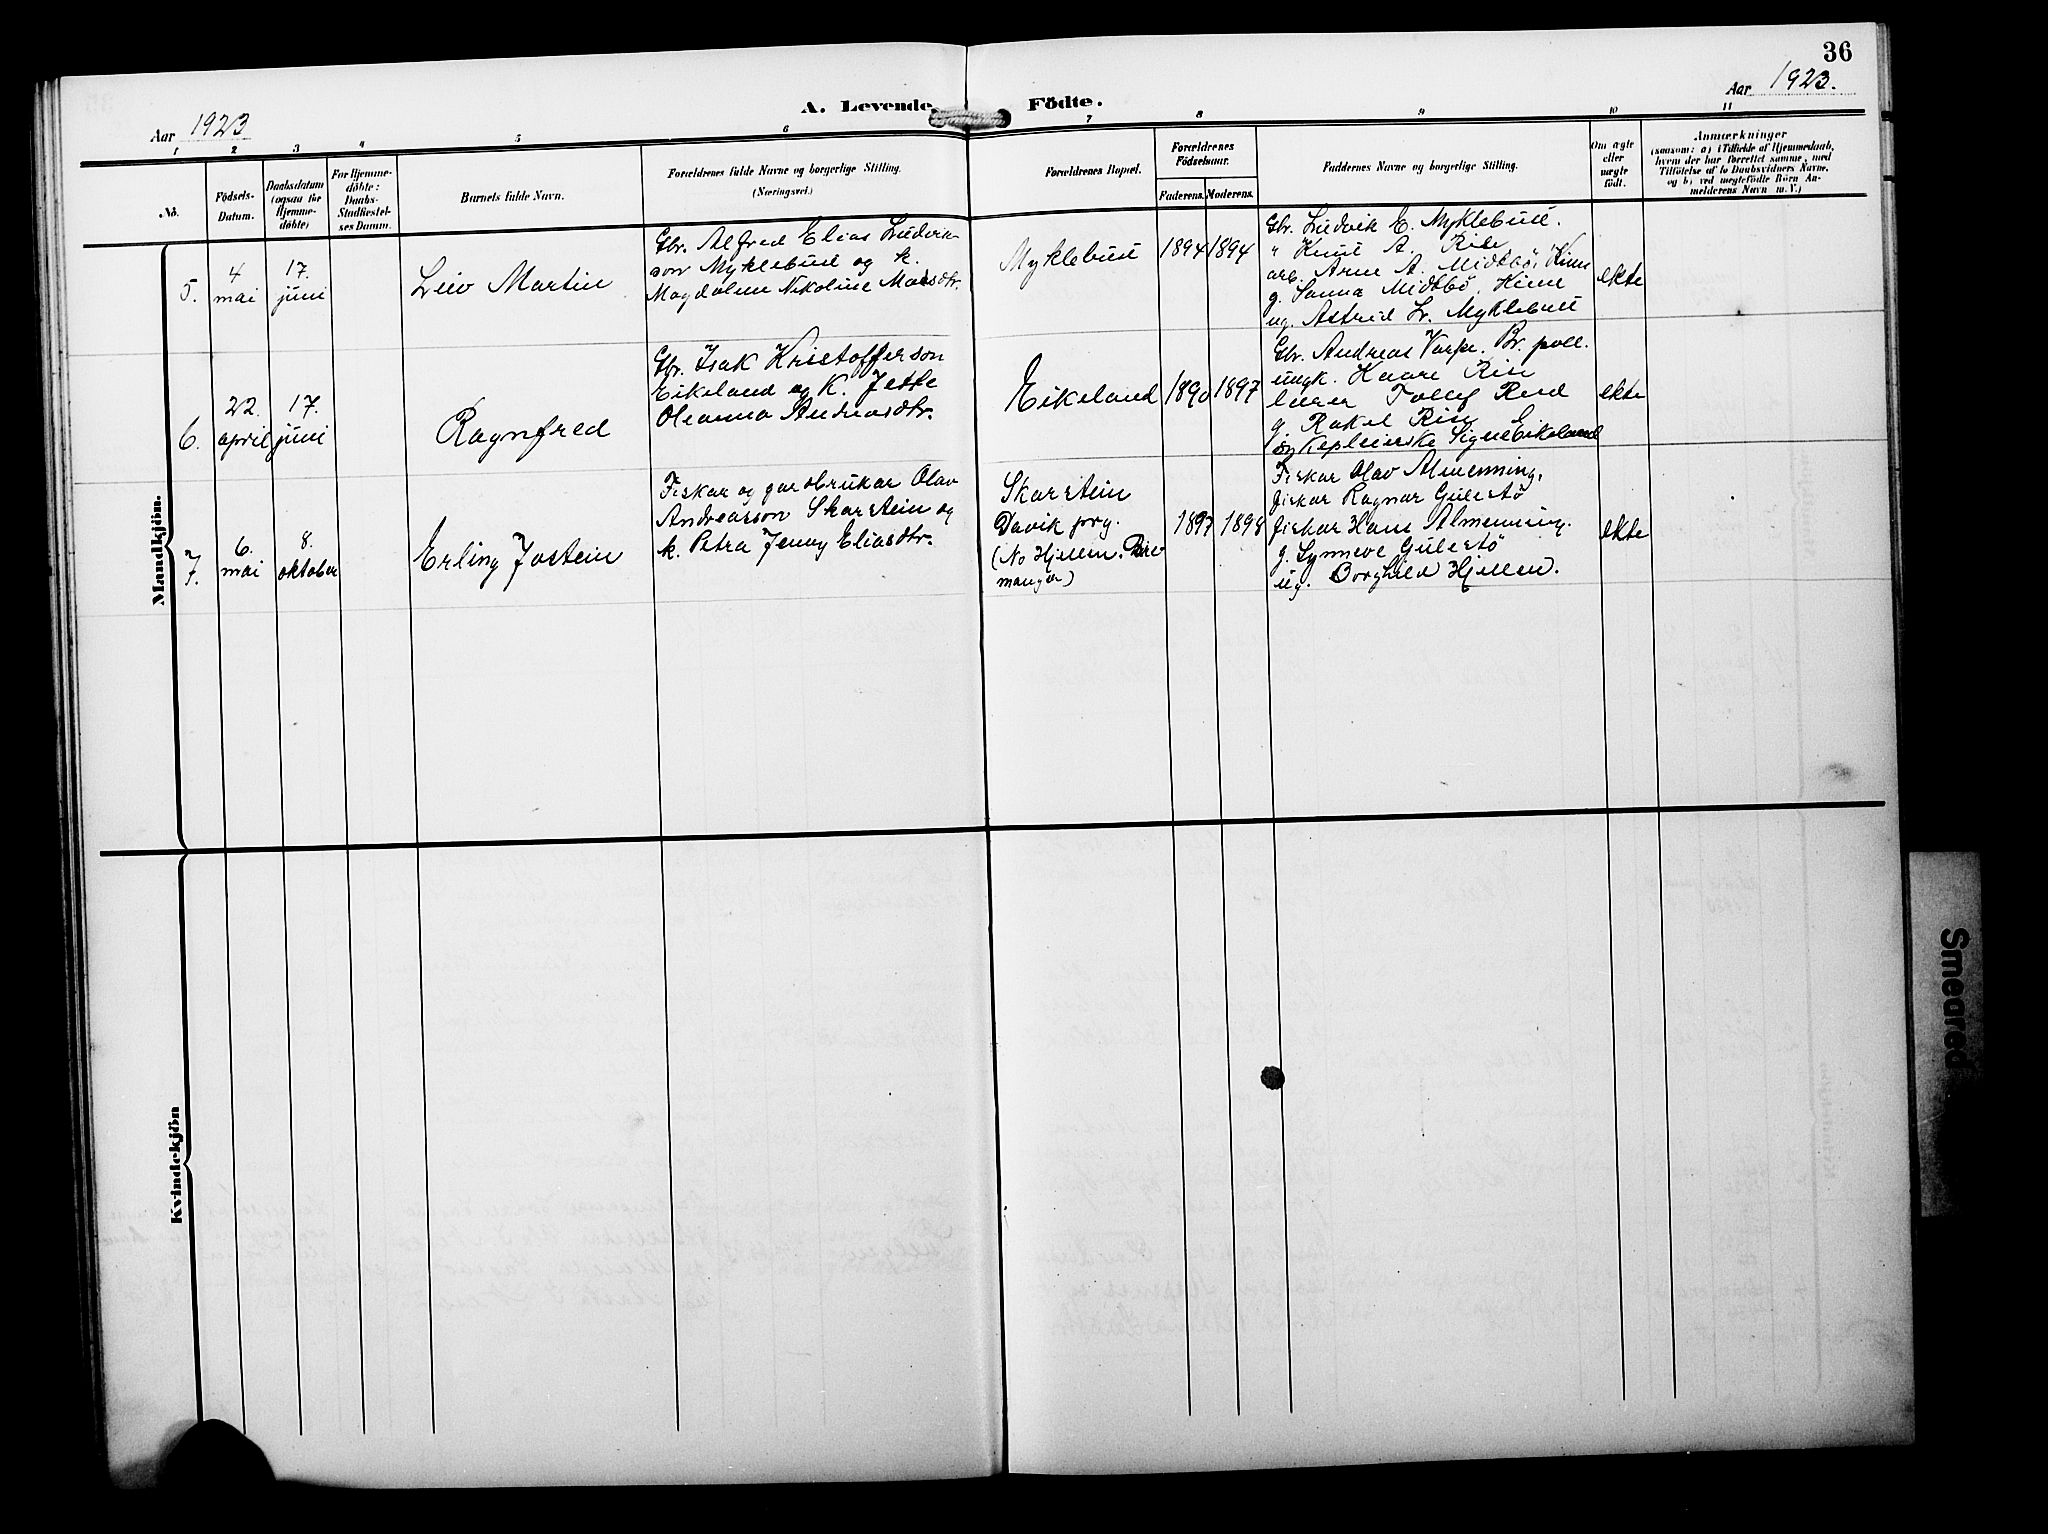 36
A. Levende Födte.
Aar 1923
Aar 1923.
1 2 3 4 5 6 7 8 9 10 11
No.
Födsels-
Datum.
Daabsdatum
(ogsaa för
Hjemme-
döbte)
For Hjemme-
döbte:
Daabs-
Stadfæstel-
ses Datum.
Barnets fulde Navn.
Forældrenes fulde Navne og borgerlige Stilling.
(Næringsvei.)
Forældrenes Bopæl.
Forældrenes
Födselsaar.
Faderens. Moderens.
Faddernes Navne og borgerlige Stilling.
Om ægte
eller
uægte
født.
Anmærkninger
(saasom: a) i Tilfælde af Hjemmedaab,
hvem der har forrettet samme, med
Tilföielse af to Daabsvidners Navne,
og b) ved uægtefödte Börn An-
melderens Navn m. V.)
Mandkjön.
5.
4
mai
17.
juni
Leiv Martin
Gbr. Alfred Elias Ludvik-
son Myklebust og k.
Magdalene Nikoline Monsdtr.
Myklebust
1894
1894
Gbr. Ludvik E. Myklebust.
" Knut A. Rise
arb. Arne A. Midtbö, Kinn
g. Sanna Midtbö. Kinn
ug. Astrid L. Myklebust
ekte
6.
22.
april
17.
juni
Ragnfred
Gbr. Isak Kristofferson
Eikeland og K. Jette
Oleanna Andreasdtr.
Eikeland
1890
1897
Gbr. Andreas Varpe. Br. poll.
ungk. Kaare Rise
lærer Tollef
g. Rakel Rise
Signe Eikeland
ekte
7.
6.
mai
8.
oktober
Erling Jostein
Fiskar og gardbrukar Olav
Andreasson Skarstein og
k. Petra Jenny Eliasdtr.
Skarstein
Davik prg.
(No Hjellen. Bre
manger)
1897
1898
Fiskar Olav Almenning,
fiskar Ragnar Gulestö
fiskar Hans Almenning.
g. Synneve Gulestö
ug. Borghild Hjellen.
ekte
Kvindekjön
Smeared